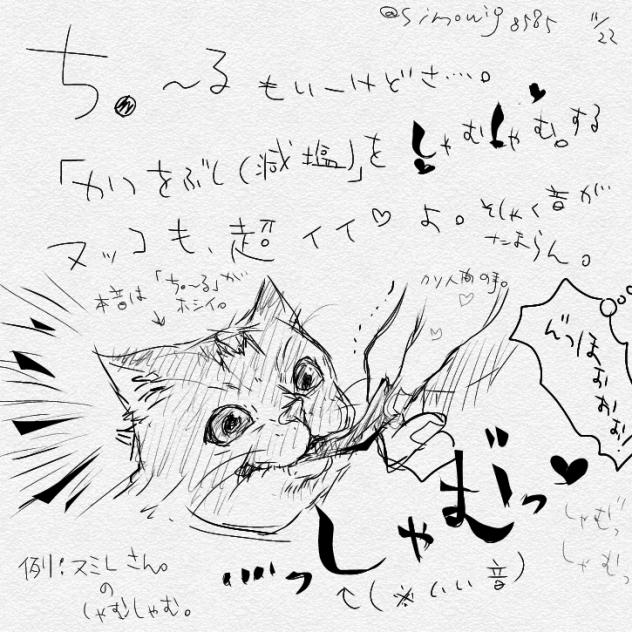 @simowig8585 11/22
ち。〜る もいーけどさ…。
「かつをぶし(減塩)」を しゃむしゃむ。する
ヌッコも、超イイ♡よ。そしゃく音が
たまらん。
本音は「ち。〜る」が
ホシイ。
カリ人間の手。
んっほぉぉぉぉ!
…っしゃむっ♥
しゃむっ
しゃむっ
↑(※いい音)
例:スミレさん。
の
しゃむしゃむ。